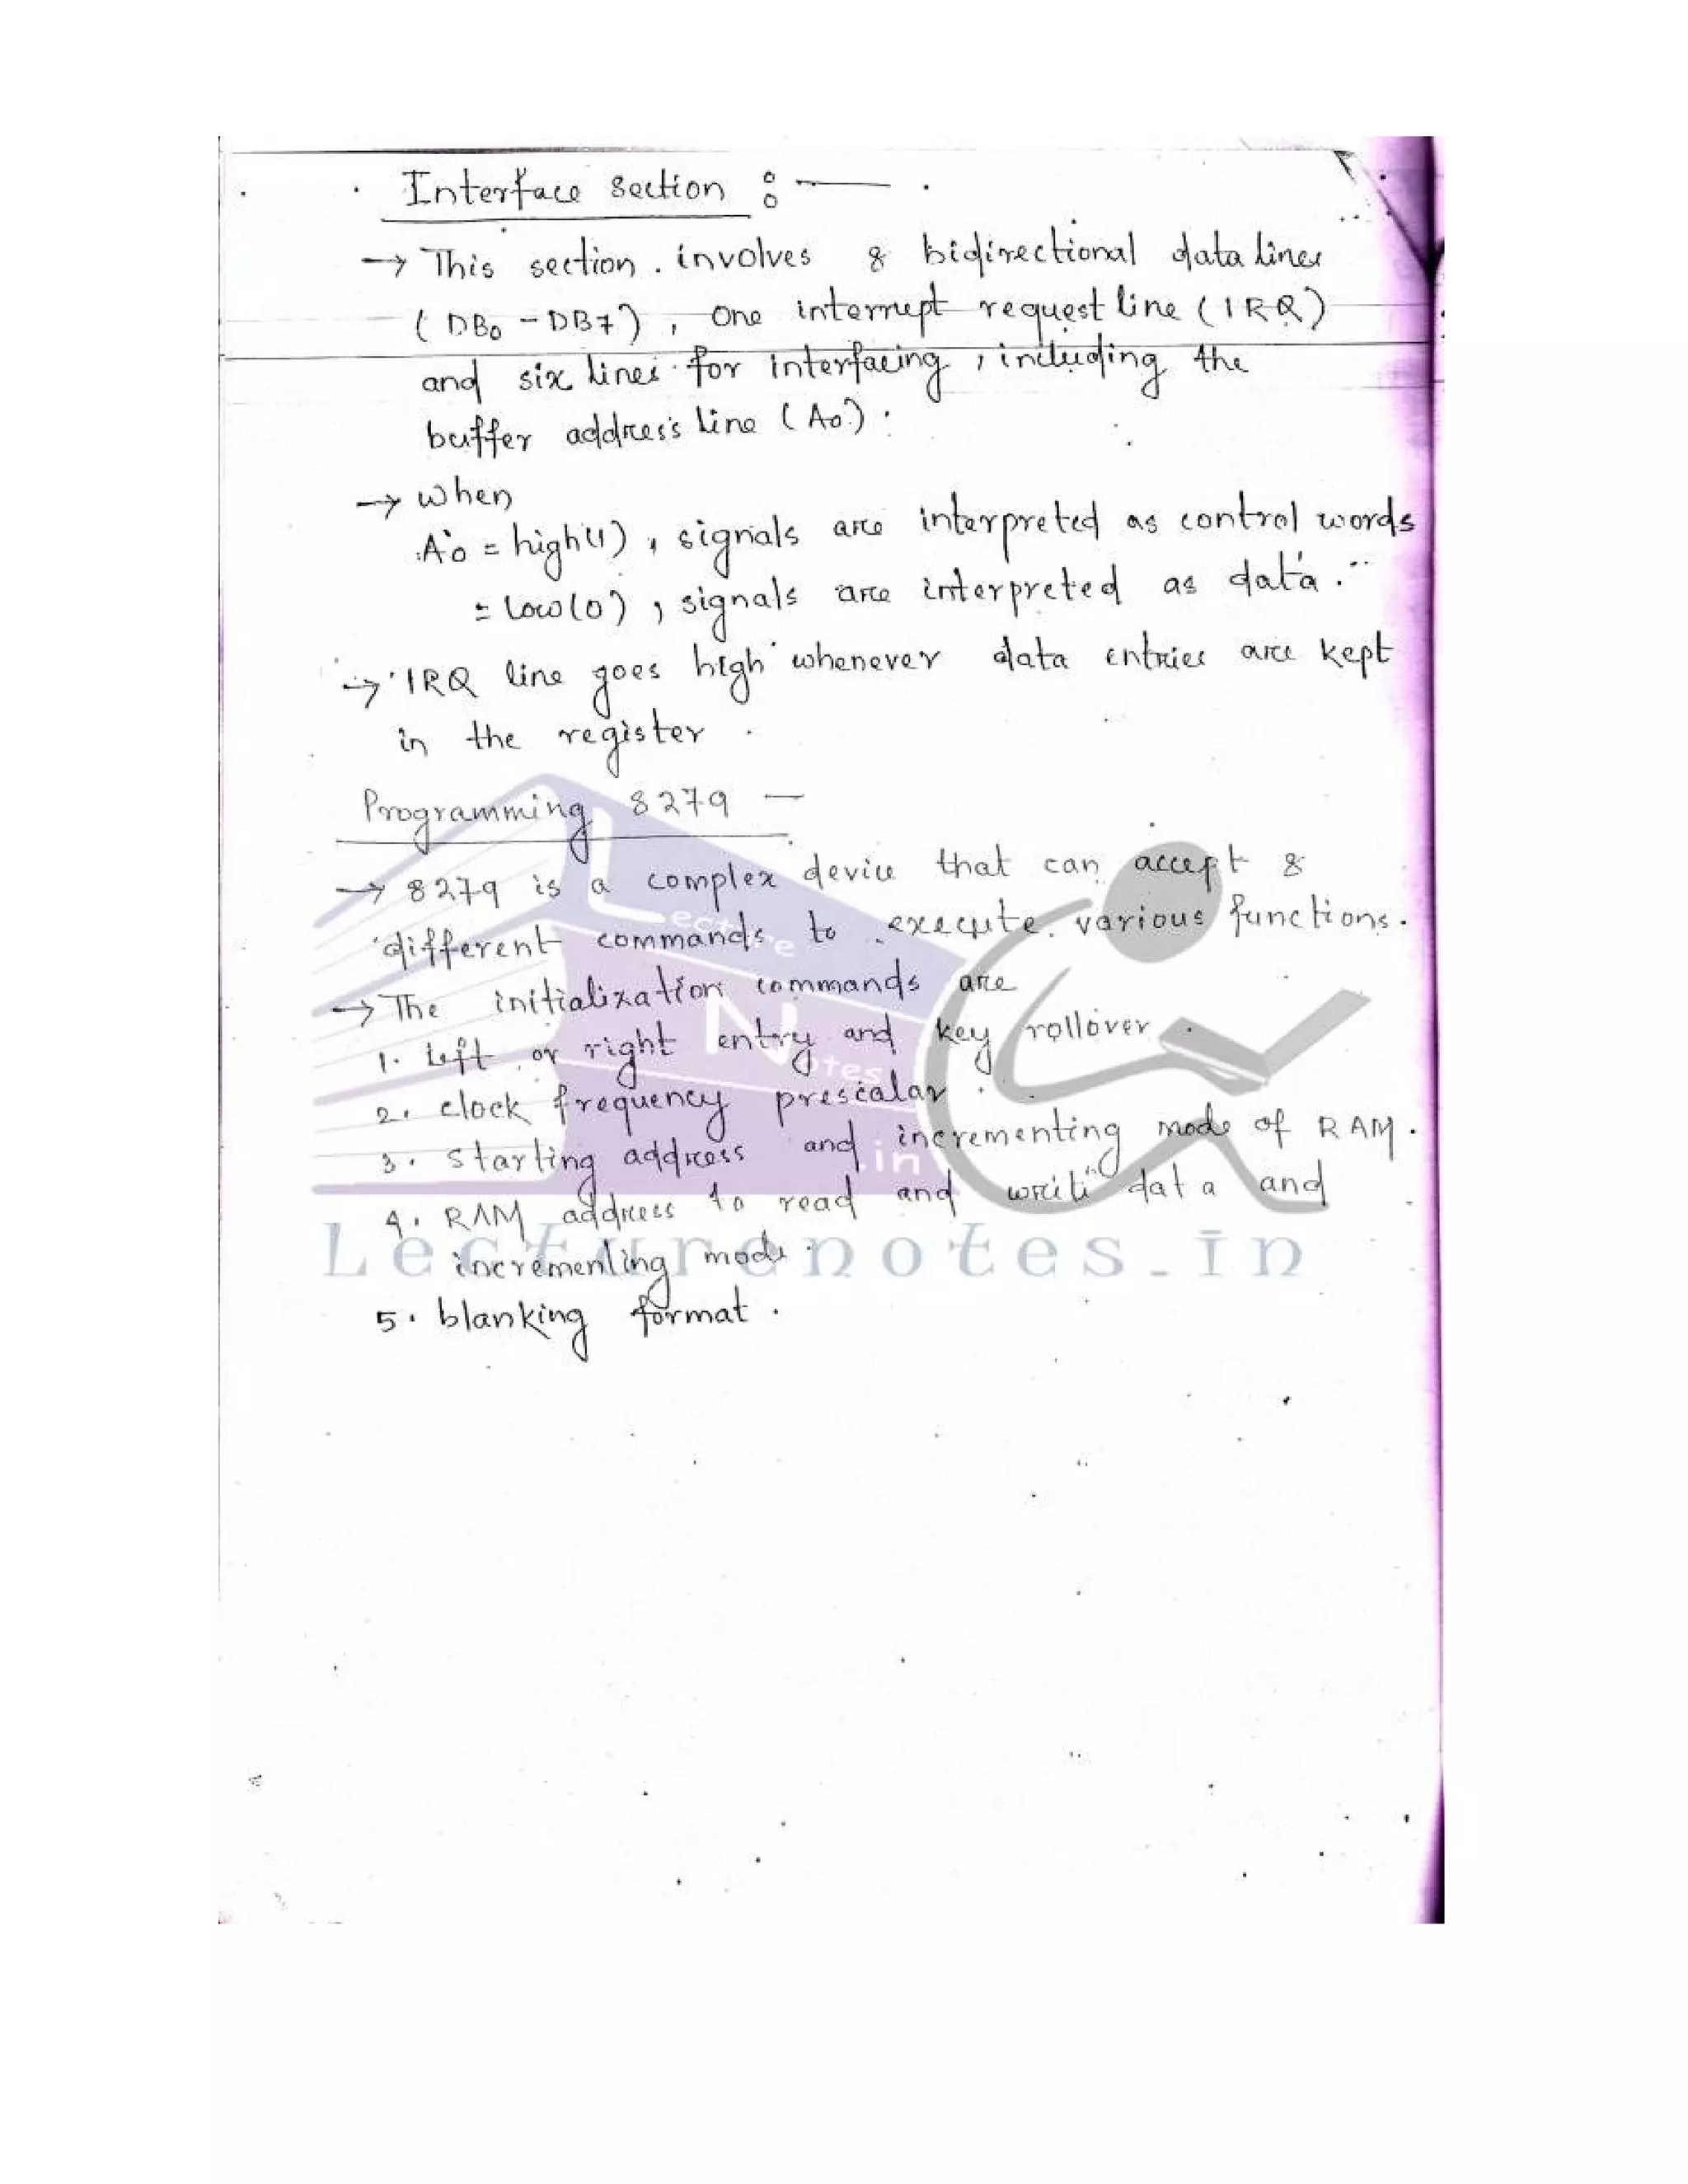 Interface section :—
→ This section involves 8 bidirectional data lines
( DB0 - DB7 ) , One interrupt request line ( IRQ )
and six lines for interfacing , including the
buffer address line ( A0 ) .
→ When
A0 = high(1) , signals are interpreted as control words
= Low(0) , signals are interpreted as data .
→ IRQ line goes high whenever data entries are kept
in the register .
Programming 8279 —
→ 8279 is a complex device that can accept 8
different commands to execute various functions .
→ The initialization commands are
1. Left or right entry and key rollover .
2. clock frequency prescalar .
3. Starting address and incrementing mode of RAM .
4. RAM address to read and write data and
incrementing mode .
5. blanking format .
Lecture
Notes
.in
Lecturenotes.in